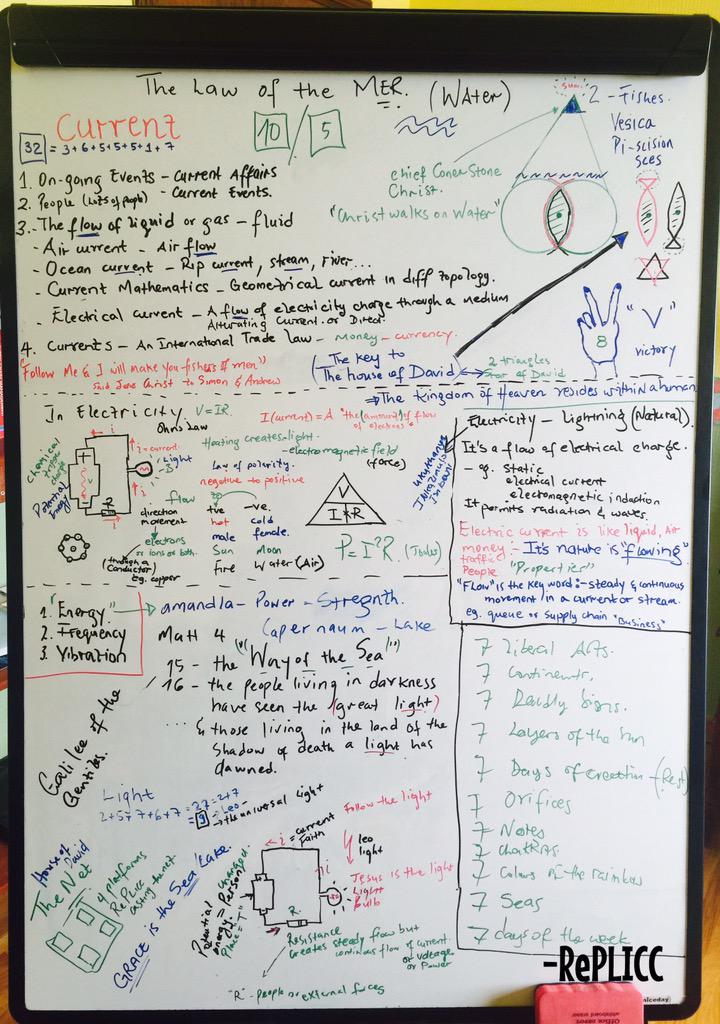 The Law of the MER. (Water)
Current
32 = 3+6+5+5+5+1+7
10 / 5
sun.
2 - Fishes.
Vesica
Pi-scision
sces
chief ConerStone
Christ.
"Christ walks on Water"
1. On-going Events - Current Affairs
2. People (lots of people) - Current Events.
3. The flow of liquid or gas - fluid
- Air current - Air flow
- Ocean current - Rip current, stream, river...
- Current Mathematics - Geometrical current in diff topology.
- Electrical current - A flow of electricity charge through a medium
Alturating Current or Direct.
4. Currents - An International Trade Law - money - currency.
"Follow Me & I will make you fishers of men"
said Jesus Christ to Simon & Andrew
(The key to
The house of David)
2 triangles
Star of David
8
"V"
victory
⇒ The Kingdom of Heaven resides within a human
In Electricity. V=IR.
Ohms Law
I (current) = A "the (amount) of flow
of electrons"
Heating creates light.
- electromagnetic field
(force)
Chemical
Potential
Energy
i
i = current
Light
R
i
Law of polarity.
negative to positive
flow
direction
movement
electrons
or ions or both.
(through a
conductor)
Eg. copper
+ve -ve.
hot cold
male female.
Sun Moon
fire Water (Air)
V
I * R
P = I²R (Joules)
Electricity - Lightning (Natural)
It's a flow of electrical charge.
- eg. Static
electrical current
electromagnetic induction
It permits radiation & waves
Electric current is like liquid, Air
money
traffic
People
- It's nature is "flowing"
"Properties"
"Flow" is the key word:- steady & continuous
movement in a current or stream.
eg. queue or supply chain "Business"
1. "Energy"
2. Frequency
3. Vibration
amandla - Power - Stregnth.
Matt 4 Capernaum - Lake
15 - the "Way of the Sea"
16 - the people living in darkness
have seen the (great light)
... & those living in the land of the
Shadow of death a light has
dawned.
Galilee of the
Gentiles.
Light
2+5+7+6+7 = 27 = 2+7
= 9 - Leo
→ the universal light
Follow the light
House of
David
The Net
4 platforms
RePLICC
casting the net.
GRACE is the Sea Lake.
i = current
Faith
i
leo
light
Jesus is the light
Light
bulb
Potential
energy = Person
Place = "T"
R.
Resistance
creates steady flow but
continuous flow of current
or voltage
or Power
"R" - people or external forces
7 Liberal Arts.
7 Continents.
7 Deadly Sins.
7 Layers of the sun
7 Days of creation - (Rest)
7 Orifices
7 Notes
7 Chakras
7 Colours of the rainbow
7 Seas
7 days of the week
-RePLICC